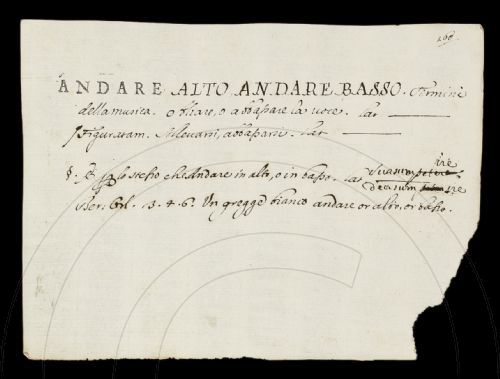 ANDARE ALTO, ANDARE BASSO. Termini
della musica. o alzare, o abbassare la voce. lat
figuratam. Allevarsi, abbassarsi. lat
§. lo stesso che Andare in alto, o in basso. lat
ire
deorsum ire
Ber. Orl. 3. 4. 6. Un gregge bianco andare or alto, or basso.